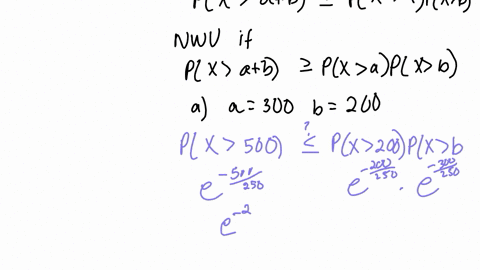 P(X > a+b) ≤ P(X > a)P(X>b)
NWU if
P(X > a+b) ≥ P(X>a)P(X>b)
a) a=300 b=200
?
P(X > 500) ≤ P(X>200)P(X>b
e^{-500/250} e^{-200/250} · e^{-300/250}
e^{-2}